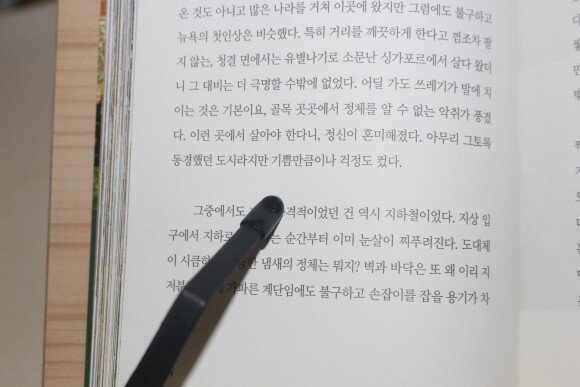 온 것도 아니고 많은 나라를 거쳐 이곳에 왔지만 그럼에도 불구하고
뉴욕의 첫인상은 비슷했다. 특히 거리를 깨끗하게 한다고 껌조차 팔
지 않는, 청결 면에서는 유별나기로 소문난 싱가포르에서 살다 왔더
니 그 대비는 더 극명할 수밖에 없었다. 어딜 가도 쓰레기가 발에 치
이는 것은 기본이요, 골목 곳곳에서 정체를 알 수 없는 악취가 풍겼
다. 이런 곳에서 살아야 한다니, 정신이 혼미해졌다. 아무리 그토록
동경했던 도시라지만 기쁨만큼이나 걱정도 컸다.
그중에서도 격적이었던 건 역시 지하철이었다. 지상 입
구에서 지하로 는 순간부터 이미 눈살이 찌푸려진다. 도대체
이 시큼 한 냄새의 정체는 뭐지? 벽과 바닥은 또 왜 이리 지
저분 가파른 계단임에도 불구하고 손잡이를 잡을 용기가 차